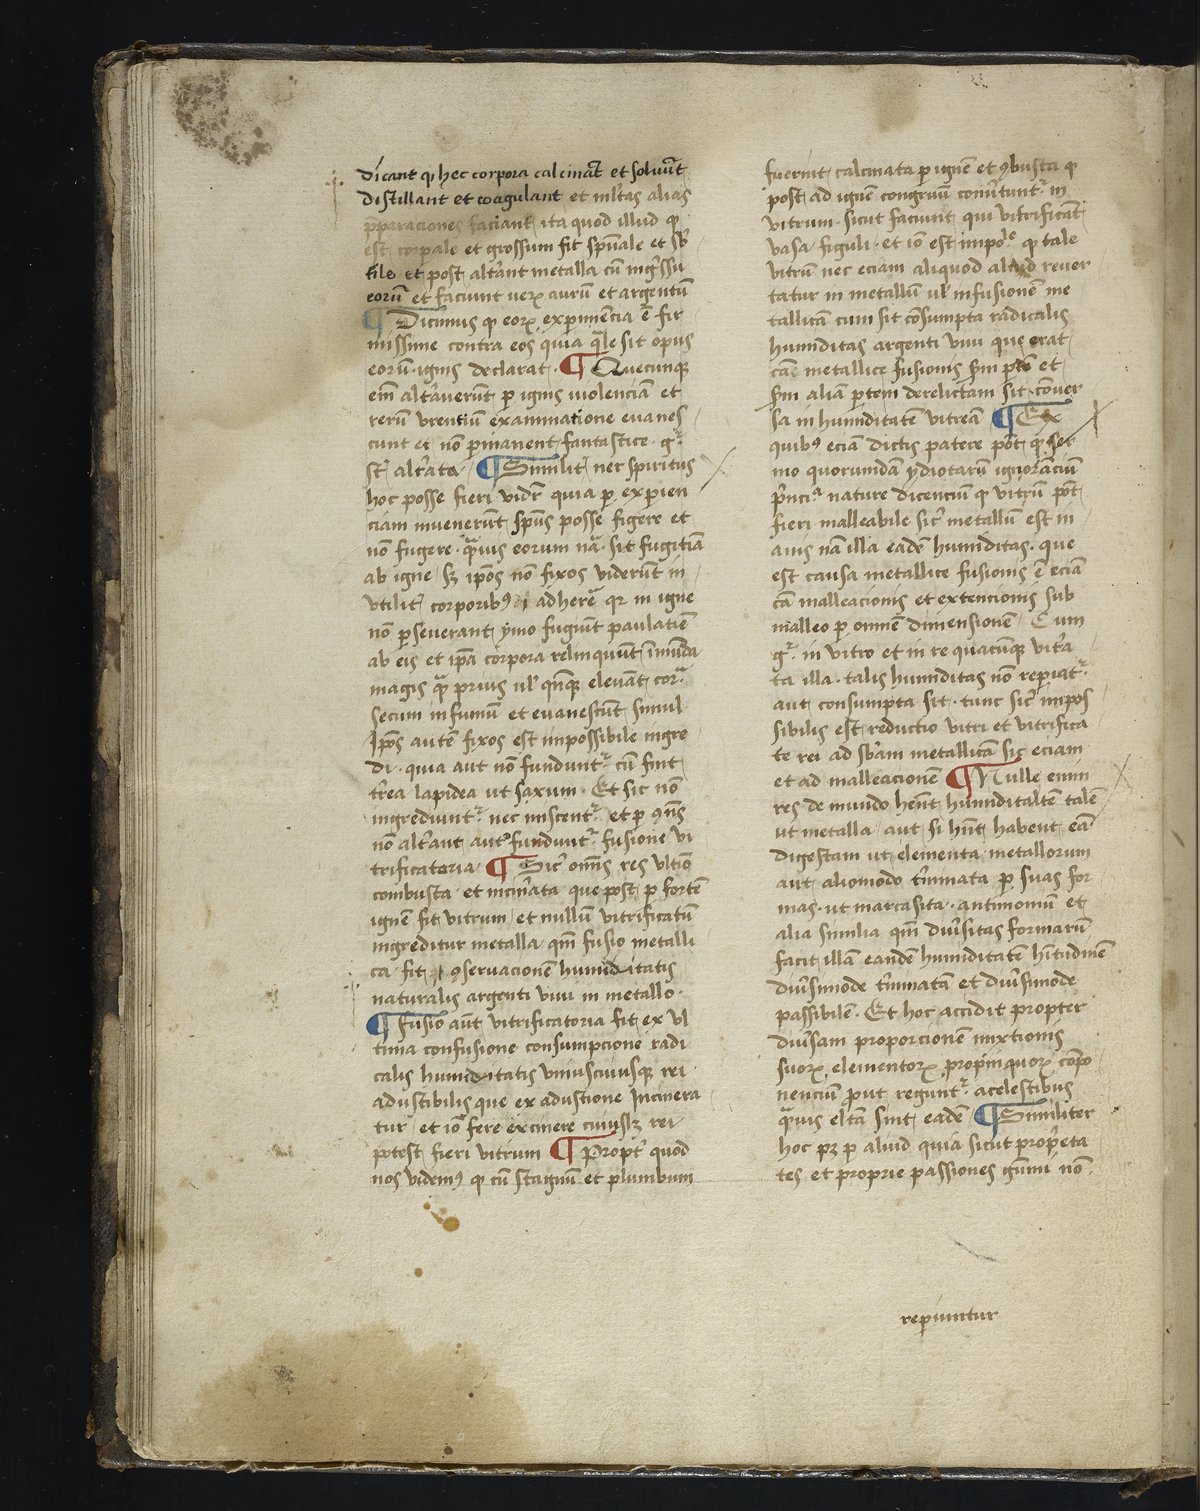 dicant qꝫ hec corpora calcināt et soluūt
distillant et coagulant et ml'tas alias
p̄paraciones faciant ita quod illud qꝫ
est corp̱ale et grossum fit spūale et sb̄
tile et post alt'ant metalla cū ing'ssu
eorū et faciunt verꝝ aurū et argentū
¶ Dicimus qꝫ eorꝝ exp̱imēcia ē fir
missime contra eos quia q̄le sit opus
eorū ignis declarat. ¶ Quecunqꝫ
em̄ alt'auerūt p̱ ignis violenciā et
rerū vrentiū examinatione euanes
cunt et nō p̱manent fantastice gͬ
st̄ alt'ata ¶ Similit' nec spiritus
hoc posse fieri vidr̄ quia p̱ exp̱ien
ciam inuenerūt sp̄us posse figere et
nō fugere q̄uis eorum nā sit fugitiā
ab igne sꝫ ip̄os nō fixos viderūt in
vtilit' corporibꝰ adhere qꝛ in igne
nō p̱seuerant ymo fugiūt paulatiē
ab eis et ip̄a corpora relinquūt īmūda
magis qͣ prius ul' qn̄qꝫ eleuāt corͣ
secum in fumū et euanescūt simul
Ip̄os autē fixos est impossibile ingre
di. quia aut nō funduntͬ cū sint
t'rea lapidea ut saxum. Et sic nō
ingrediuntͬ nec miscentͬ et p̱ ꝯn̄s
nō alt'ant aut funduntͬ fusione vi
trificatoria ¶ Sic' om̄s res vltīo
combusta et incin'ata que post p̱ fortē
ignē fit vitrum et nullū vitrificatū
ingreditur metalla qm̄ fusio metalli
ca fit ꝯseruacionē humiditatis
naturalis argenti viui in metallo.
¶ Fusio aūt vitrificatoria fit ex vl
tima confusione consumpcione radi
calis humiditatis vniuscuiusqꝫ rei
adustibilis que ex adustione Incinera
tur et iō fere ex cinere cuiuslꝫ rei
potest fieri vitrum ¶ Propt' quod
nos videmꝰ qꝫ cū stagnū et plumbum
fuerint calcinata p̱ ignē et ꝯbusta qꝫ
post ad ignē congruū conu'tuntͬ in
vitrum. sicut faciunt qui vitrificāt
vasa figuli. et iō est impoˡᵉ qꝫ tale
vitrū nec eciam aliquod aliud reuer
tatur in metallū ul' in fusionē me
tallicā cum sit cōsumpta radicalis
humiditas argenti viui que erat
cā metallice fusionis scd̄m ptē et
scd̄m aliā p̱tem derelictam sit cōuer
sa in humiditatē vitreā ¶ Ex
quibꝰ eciā dictis patere pōt qꝫ ser
mo quorundā ydiotarū ignorāciū
p'ncia nature dicenciū qꝫ vitrū pōt
fieri malleabile sic' metallū est in
anis nā illa eadē humiditas. que
est causa metallice fusionis ē eciā
cā malleacionis et extencionis sub
malleo p̱ omnē dimensionē Cum
gͬ in vitro et in re quacūqꝫ vit'a
ta illa talis humiditas nō rep̱iatͬ
aut consumpta sit. tunc sic' impos
sibilis est reductio vitri et vitrifica
te rei ad sb̄am metallicā sic eciam
et ad malleacionē ¶ Nulle enim
res de mundo hen̄t humiditatē talē
ut metalla aut si hn̄t habent eā
digestam ut elementa metallorum
aut aliomodo t'minata p̱ suas for
mas. ut marcasita. antimoniū et
alia similia qm̄ diu'sitas formarū
facit illā eandē humiditatē hītudinē
diu'simode t'minatā et diu'simode
passibilē. Et hoc accidit propter
diu'sam proporcionē mixtionis
suorꝝ elementorꝝ propinquorꝝ cōpo
nenciū ꝓut reguntͬ a celestibus
q̄uis el'ta sint eadē ¶ Similiter
hoc pꝫ p̱ aliud quia sicut propͥeta
tes et proprie passiones gn̄mi nō
rep̱iuntur